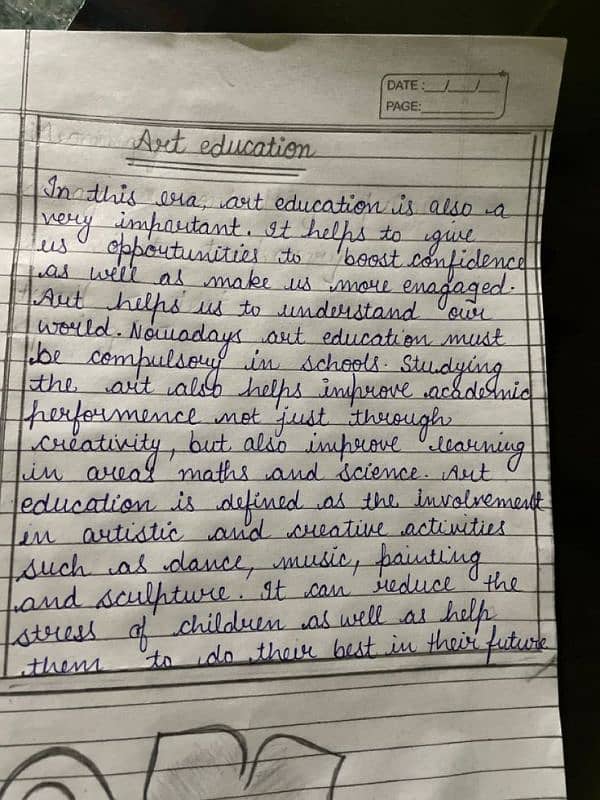 DATE:__/__/__
PAGE:________
Art education
In this era, art education is also a
very important. It helps to give
us opportunities to boost confidence
as well as make us more enagaged.
Art helps us to understand our
world. Nowadays art education must
be compulsory in schools. Studying
the art also helps improve academic
performence not just through
creativity, but also improve learning
in areas maths and science. Art
education is defined as the involvement
in artistic and creative activities
such as dance, music, painting
and sculpture. It can reduce the
stress of children as well as help
them to do their best in their future